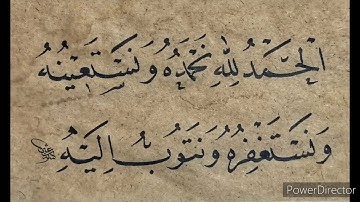 الْحَمْدُ لِلّٰهِ نَحْمَدُهُ وَنَسْتَعِينُهُ
وَنَسْتَغْفِرُهُ وَنَتُوبُ إِلَيْهِ
PowerDirector